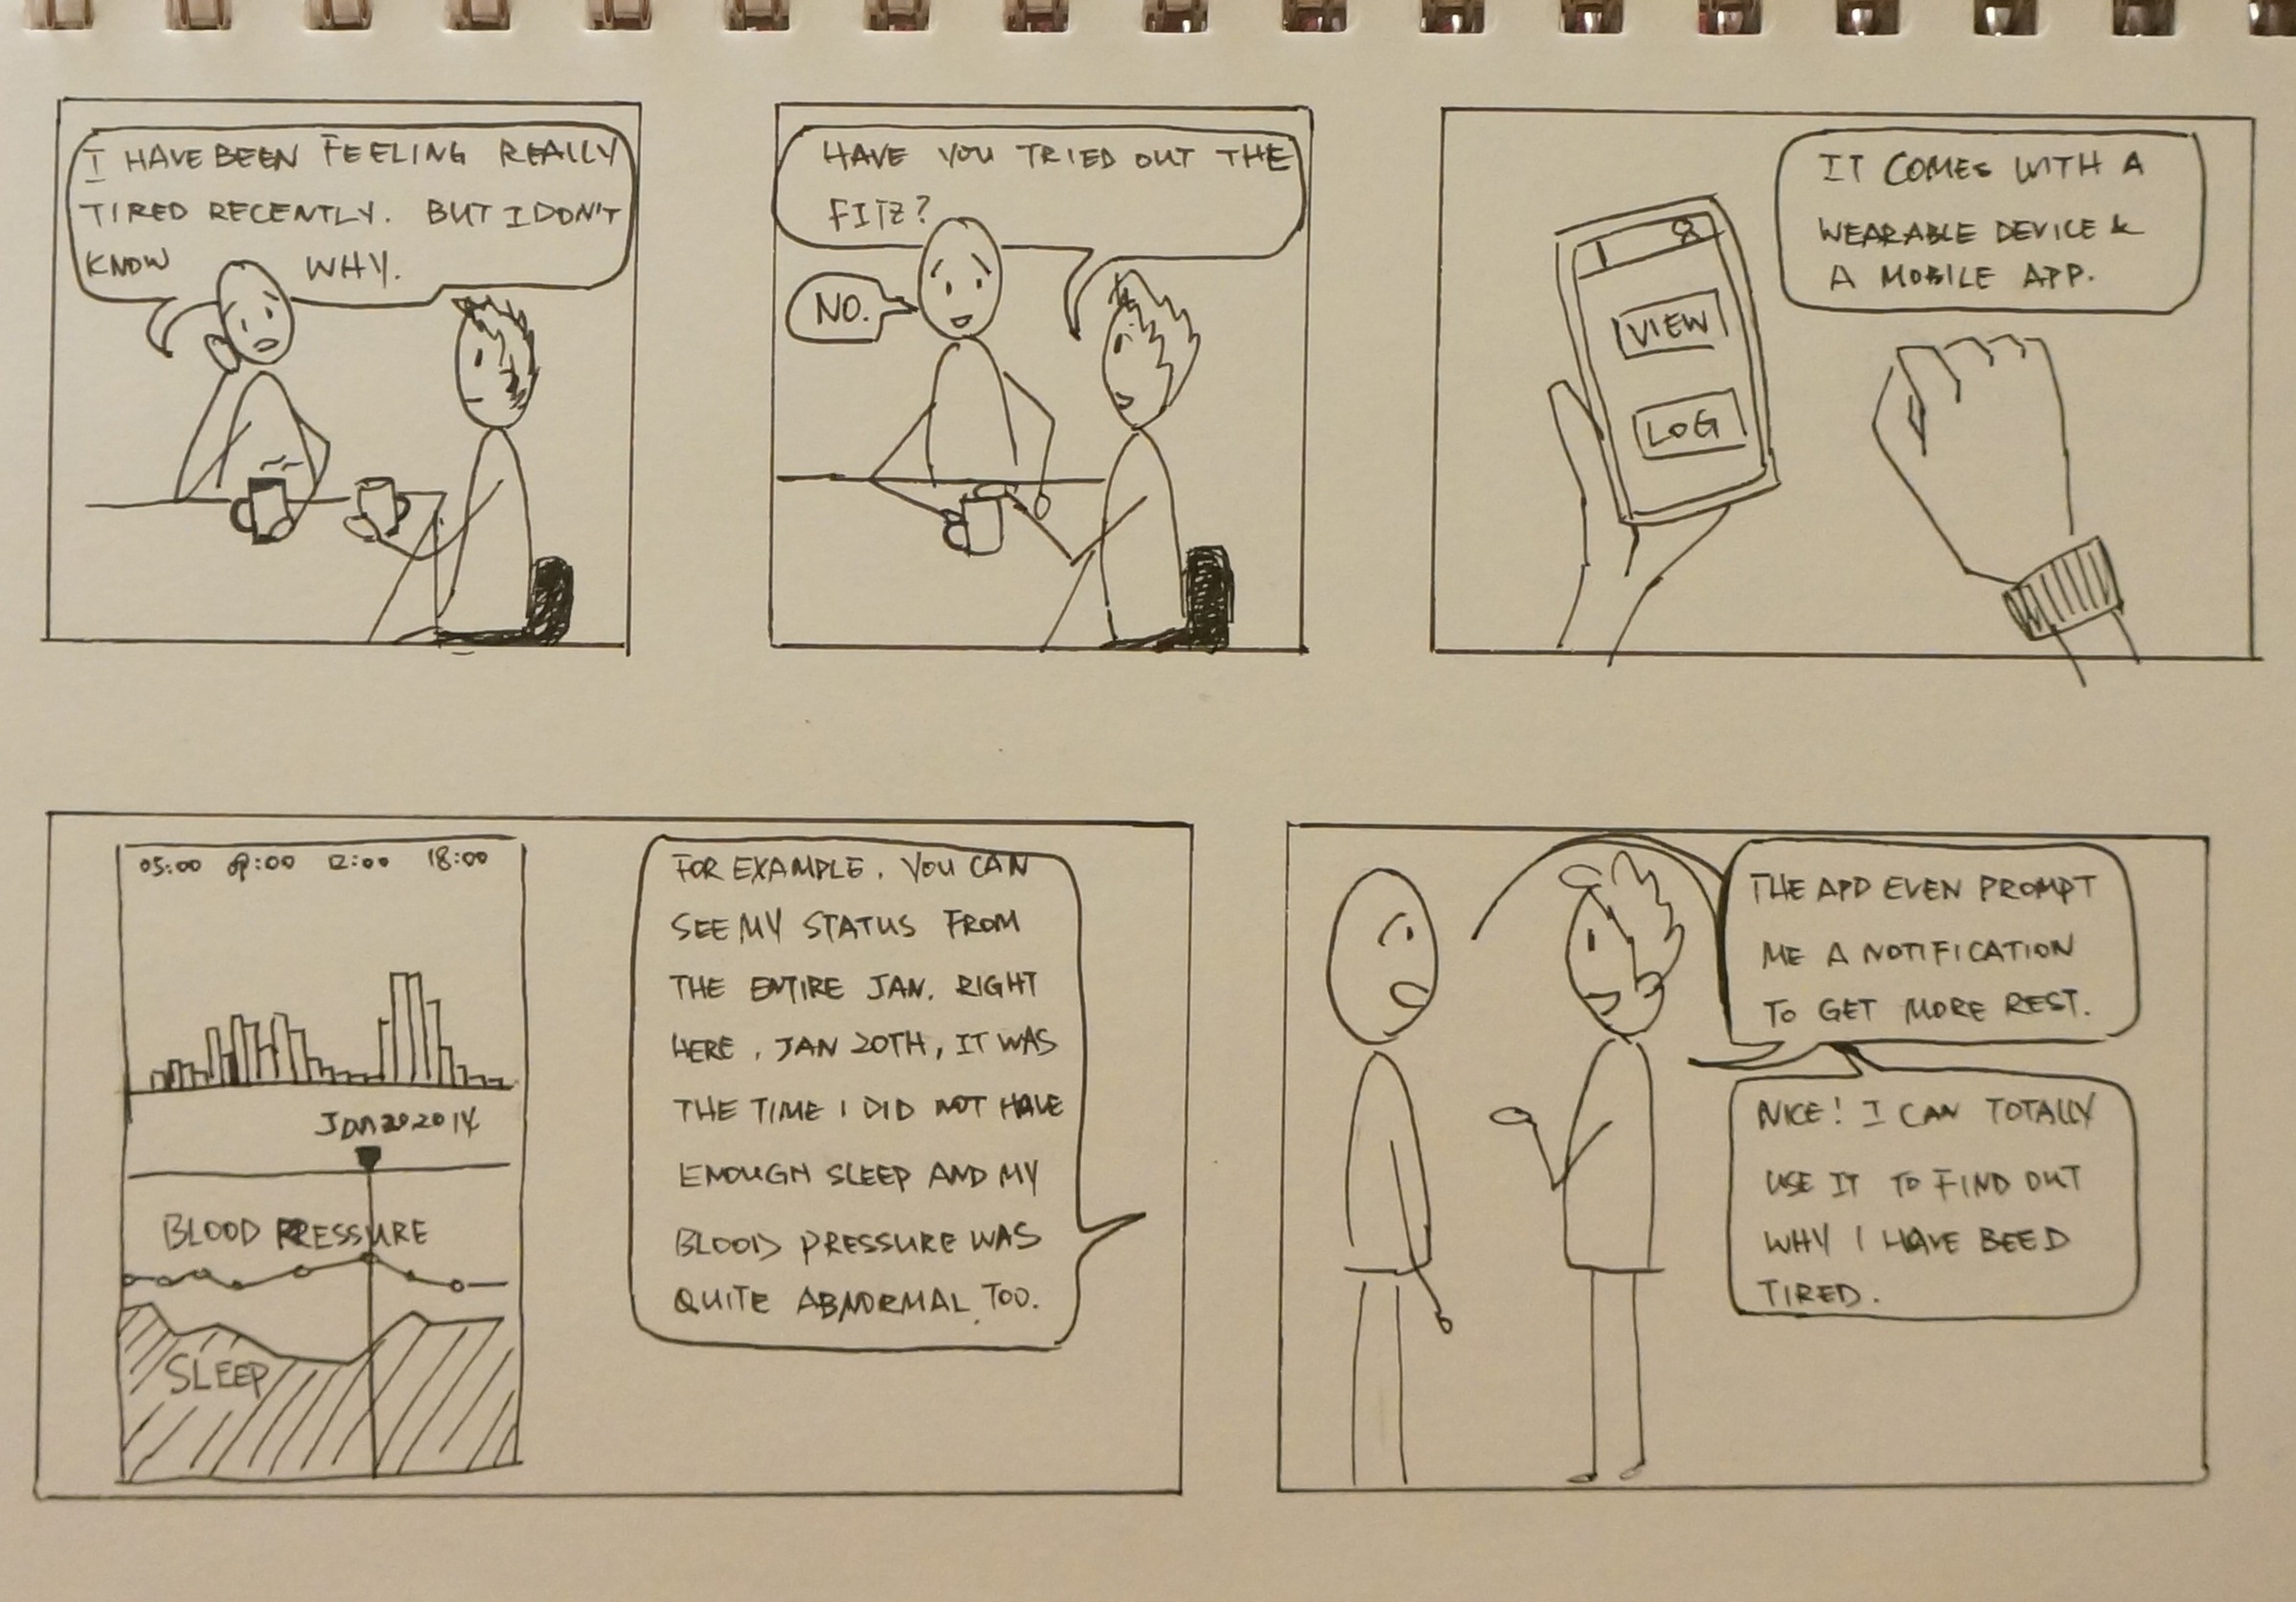 I HAVE BEEN FEELING REALLY
TIRED RECENTLY. BUT I DON'T
KNOW WHY.
HAVE YOU TRIED OUT THE
FITZ?
NO.
VIEW
LOG
IT COMES WITH A
WEARABLE DEVICE &
A MOBILE APP.
05:00 09:00 12:00 18:00
Jan 20 2014
BLOOD PRESSURE
SLEEP
FOR EXAMPLE. YOU CAN
SEE MY STATUS FROM
THE ENTIRE JAN. RIGHT
HERE, JAN 20TH, IT WAS
THE TIME I DID NOT HAVE
ENOUGH SLEEP AND MY
BLOOD PRESSURE WAS
QUITE ABNORMAL TOO.
THE APP EVEN PROMPT
ME A NOTIFICATION
TO GET MORE REST.
NICE! I CAN TOTALLY
USE IT TO FIND OUT
WHY I HAVE BEED
TIRED.